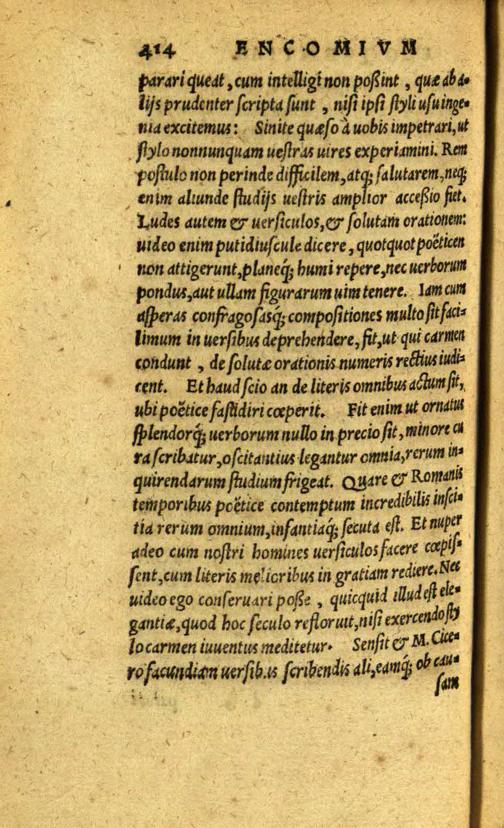 414 ENCOMIVM
parari queat, cum intelligi non poßint, quæ ab a-
lijs prudenter scripta sunt, nisi ipsi styli usu inge-
nia excitemus: Sinite quæso à uobis impetrari, ut
stylo nonnunquam uestras uires experiamini. Rem
postulo non perinde difficilem, atq; salutarem, neq;
enim aliunde studijs uestris amplior acceßio fiet.
Ludes autem & uersiculos, & solutam orationem:
uideo enim putidiuscule dicere, quotquot poëticen
non attigerunt, planeq́; humi repere, nec uerborum
pondus, aut ullam figurarum uim tenere. Iam cum
asperas confragosasq́; compositiones multo sit faci-
limum in uersibus deprehendere, fit, ut qui carmen
condunt, de solutæ orationis numeris rectius iudi-
cent. Et haud scio an de literis omnibus actum sit,
ubi poëtice fastidiri cœperit. Fit enim ut ornatus
splendorq́; uerborum nullo in precio sit, minore cu
ra scribatur, oscitantius legantur omnia, rerum in-
quirendarum studium frigeat. Quare & Romanis
temporibus poëtice contemptum incredibilis insci-
tia rerum omnium, infantiaq́; secuta est. Et nuper
adeo cum nostri homines uersiculos facere cœpis-
sent, cum literis melioribus in gratiam rediere. Nec
uideo ego conseruari poße, quicquid illud est ele-
gantiæ, quod hoc seculo refloruit, nisi exercendo sty
lo carmen iuuentus meditetur. Sensit & M. Cice-
ro facundiam uersibus scribendis ali, eamq́; ob cau-
sam